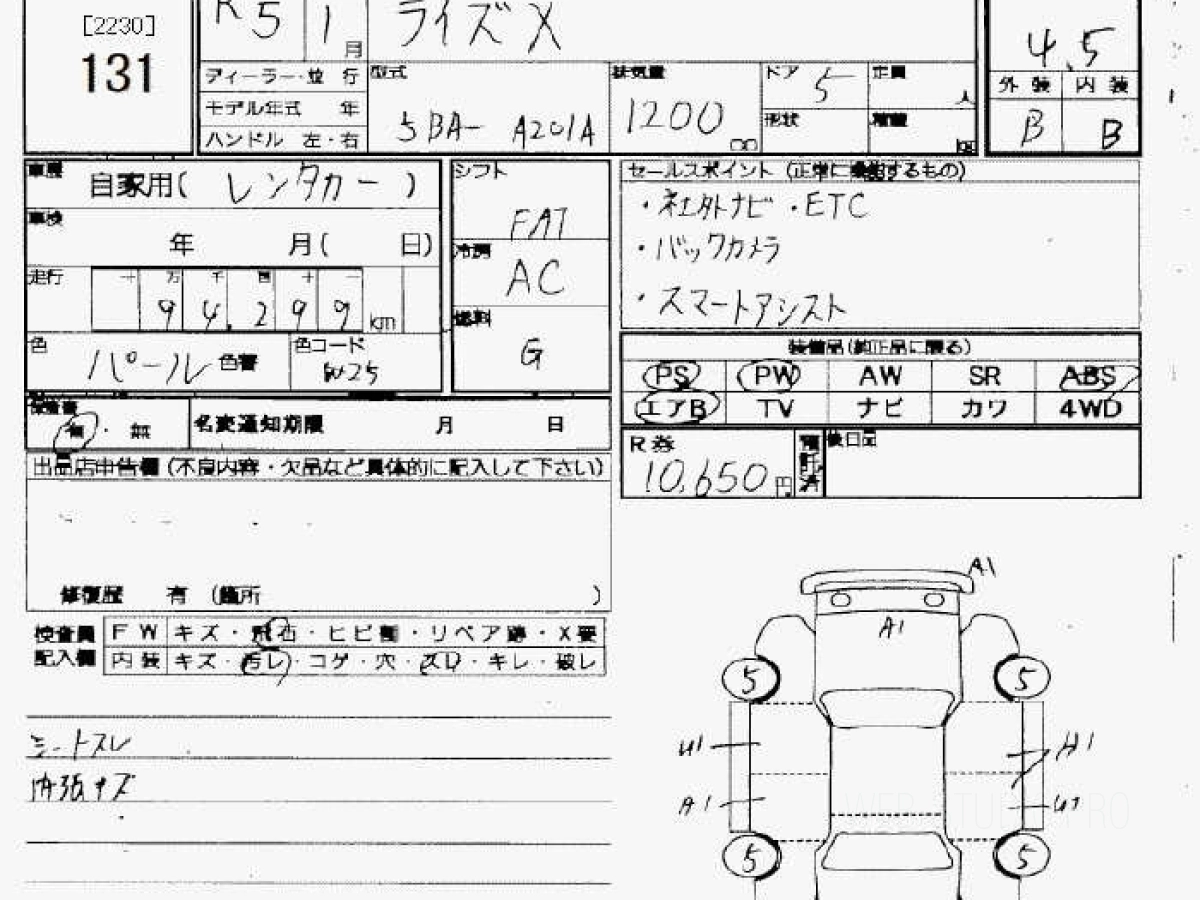 [2230]
131
R 5 1 月 ライズ X
ディーラー・並 行
モデル年式 年
ハンドル 左・右
型式
5BA- A201A
排気量
1200 cc
ドア 5
定員 人
形状
積載 kg
4.5
外 装 内 装
B B
車歴
自家用( レンタカー )
車検
年 月( 日)
走行 十 万 千 百 十 一
94,299 km
色 パール 色替
色コード W25
シフト
FAT
冷房
AC
燃料
G
セールスポイント (正常に機能するもの)
・社外ナビ ・ETC
・バックカメラ
・スマートアシスト
装備品(純正品に限る)
PS PW AW SR ABS
エアB TV ナビ カワ 4WD
保証書
有 ・ 無
名変通知期限 月 日
R券
10,650 円
預託済
後日品
出品店申告欄 (不良内容・欠品など具体的に記入して下さい)
修復歴 有 (箇所 )
検査員
記入欄
F W キズ・飛石・ヒビ割・リペア跡・X要
内 装 キズ・汚レ・コゲ・穴・スレ・キレ・破レ
シートスレ
内張キズ
A1
A1
5 5
U1
A1
A1
U1
5 5
WEB STUDIO PRO